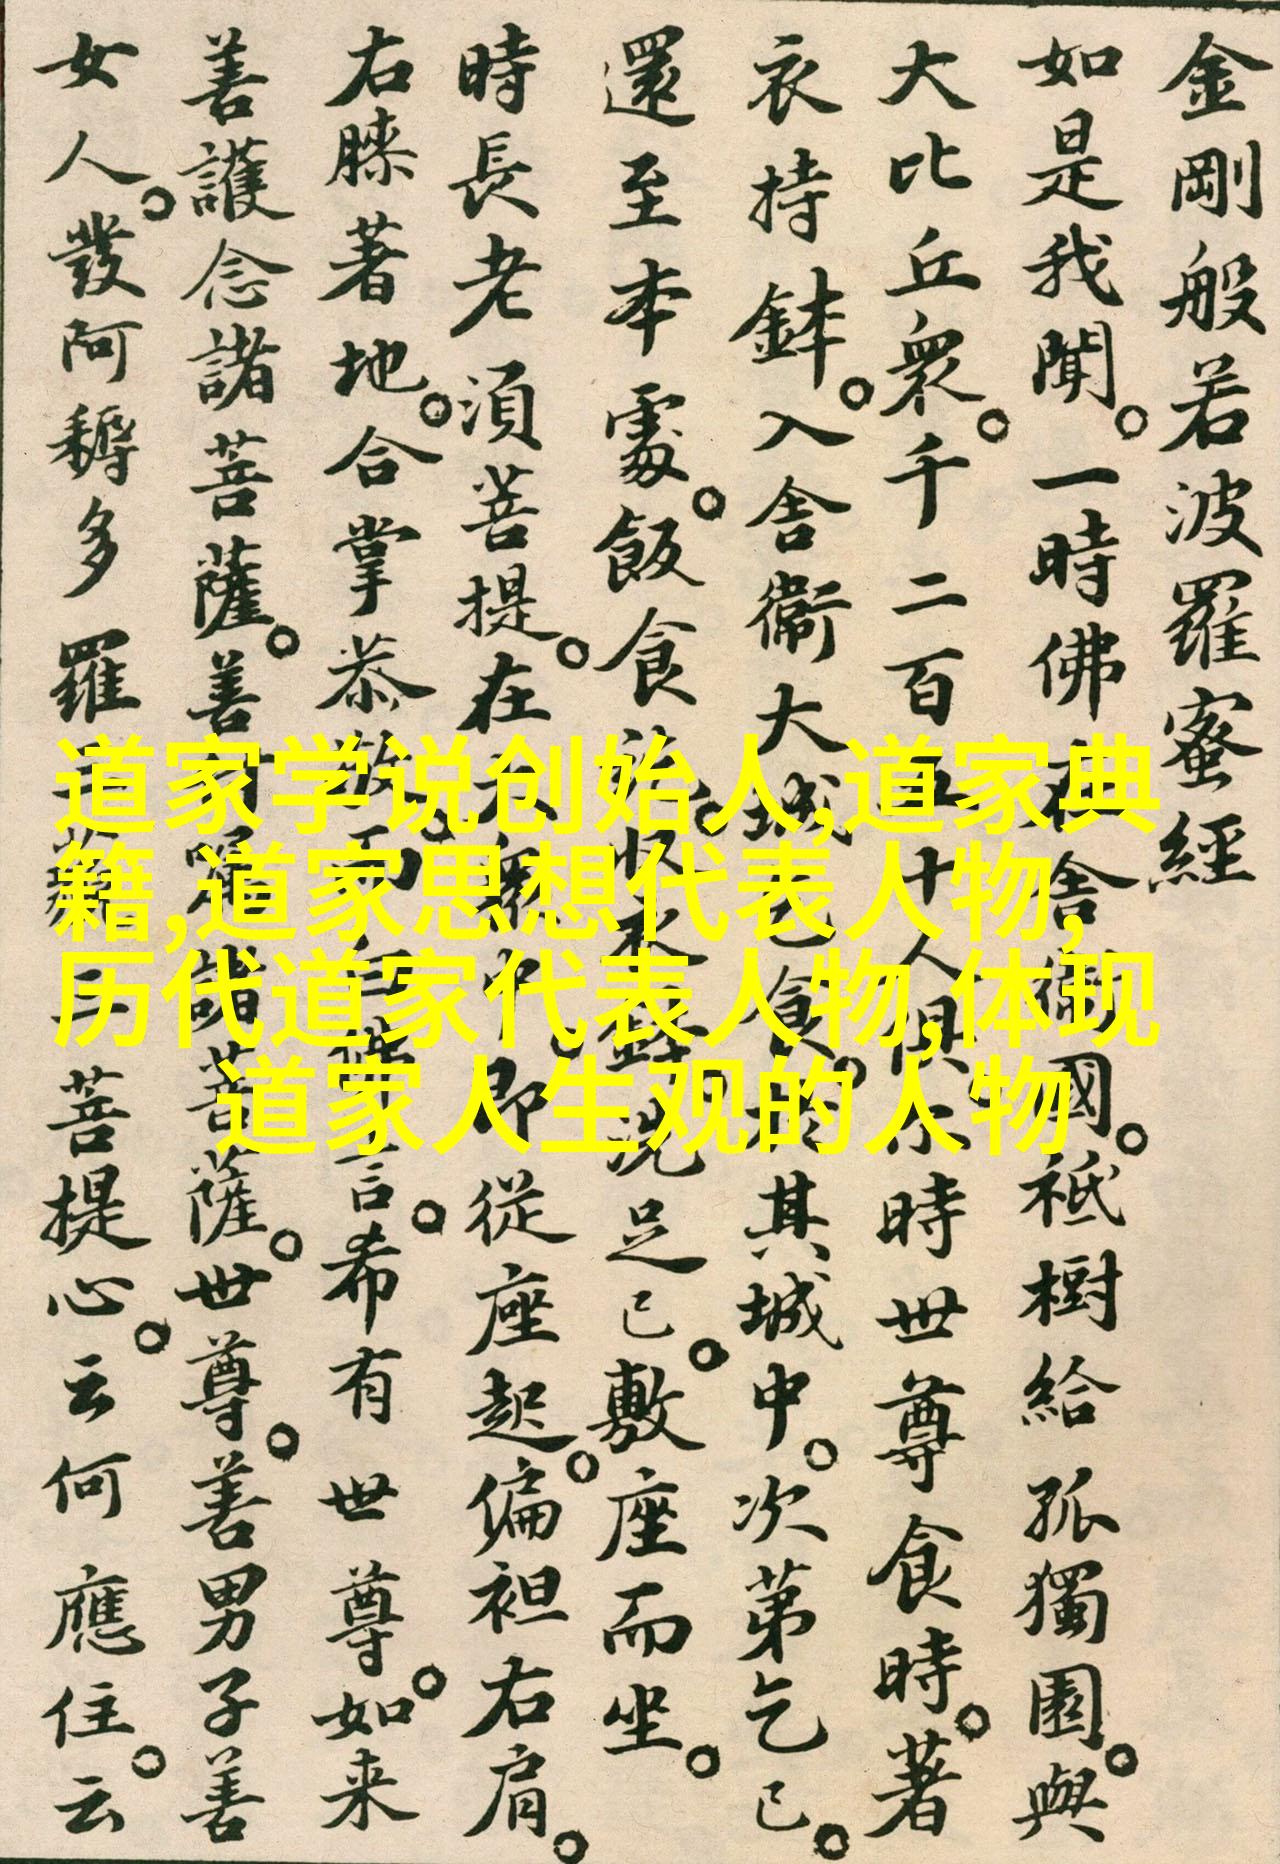 金剛般若波羅蜜經
如是我聞。一時佛在舍衛國。祇樹給孤獨園。與
大比丘衆。千二百五十人俱尒時世尊食時。著
衣持鉢。入舍衛大城乞食。於其城中。次第乞已。
還至本處。飯食訖。收衣鉢。洗足已。敷座而坐。
時長老須菩提。在大衆中。即從座起。偏袒右肩。
右膝著地。合掌恭敬。而白佛言。希有世尊。如来
善護念諸菩薩。善付囑諸菩薩。世尊。善男子善
女人。發阿耨多羅三藐三菩提心。云何應住。云
道家学说创始人,道家典
籍,道家思想代表人物,
历代道家代表人物,体现
道家人生观的人物